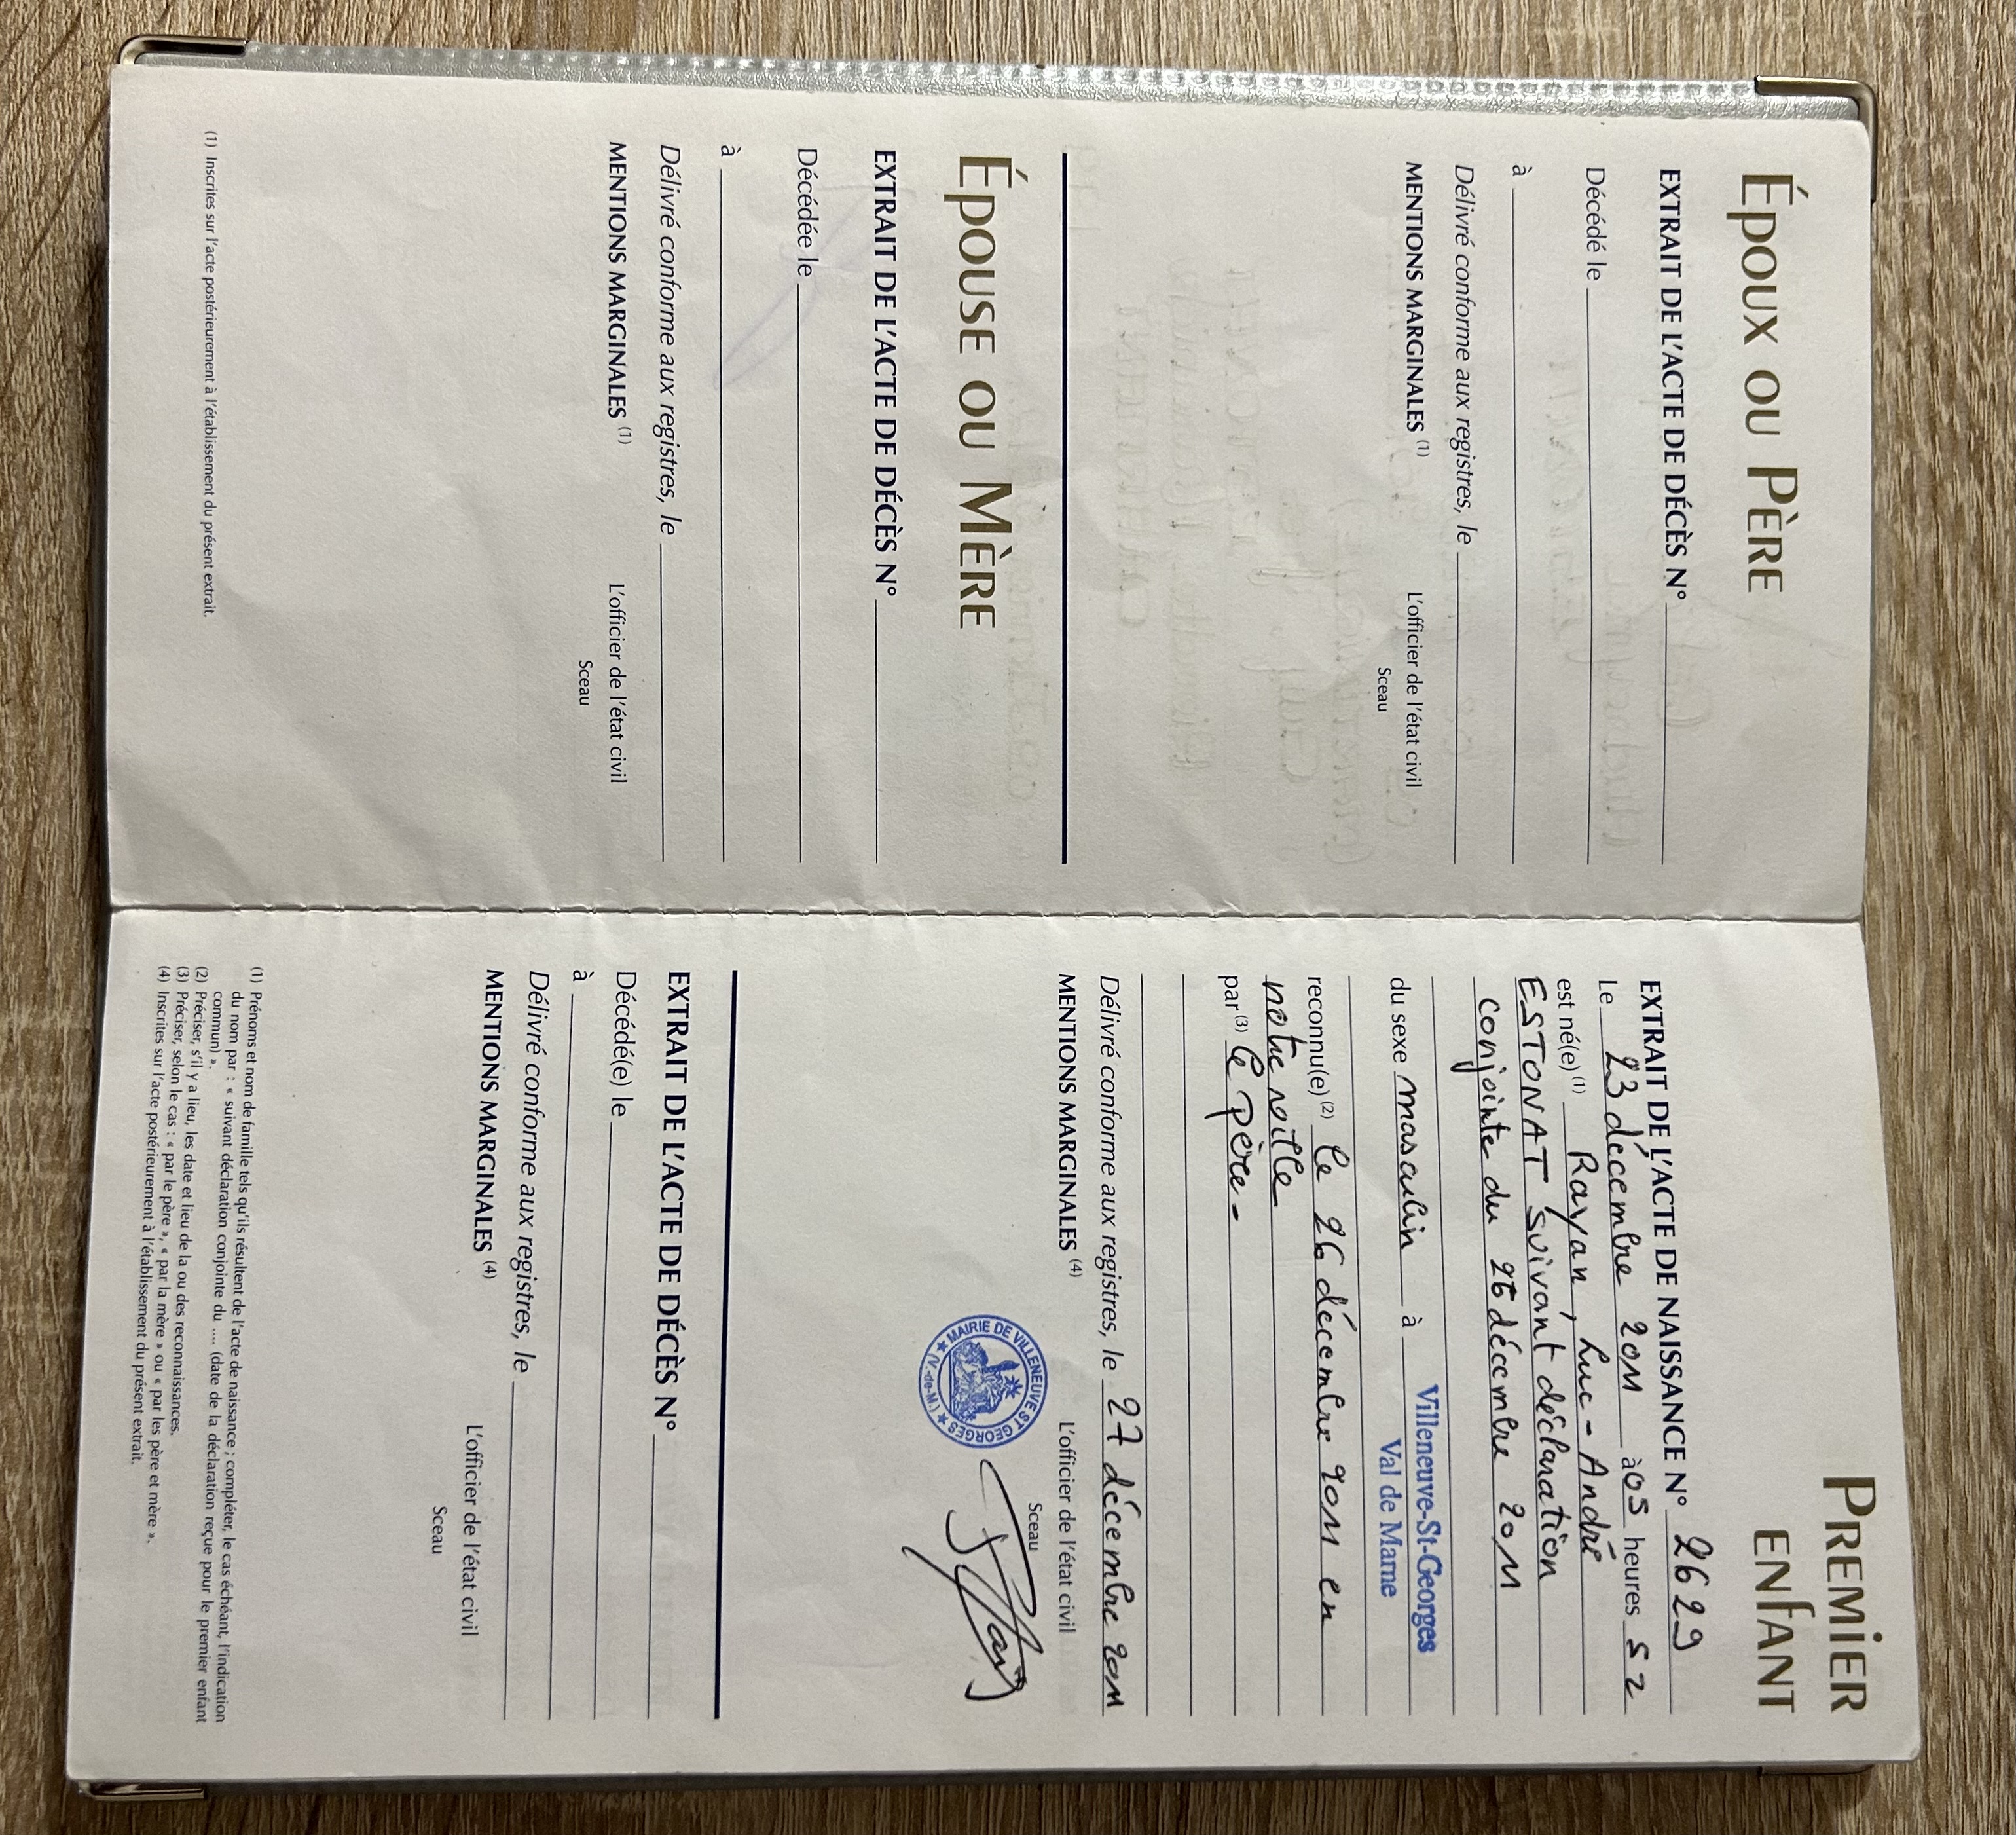 ÉPOUX OU PÈRE
EXTRAIT DE L'ACTE DE DÉCÈS N°
Décédé le
à
Délivré conforme aux registres, le
MENTIONS MARGINALES (1)
L'officier de l'état civil
Sceau
ÉPOUSE OU MÈRE
EXTRAIT DE L'ACTE DE DÉCÈS N°
Décédée le
à
Délivré conforme aux registres, le
MENTIONS MARGINALES (1)
L'officier de l'état civil
Sceau
(1) Inscrites sur l'acte postérieurement à l'établissement du présent extrait.
PREMIER
ENFANT
EXTRAIT DE L'ACTE DE NAISSANCE N° 2629
Le 23 décembre 2011 à 05 heures 52
est né(e) (1) Rayan, Luc-André
ESTONAT suivant déclaration
conjointe du 26 décembre 2011
Villeneuve-St-Georges
du sexe masculin à Val de Marne
reconnu(e) (2) le 26 décembre 2011 en
notre ville
par (3) le père-
Délivré conforme aux registres, le 27 décembre 2011
MENTIONS MARGINALES (4)
L'officier de l'état civil
Sceau
MAIRIE DE VILLENEUVE ST GEORGES
(V.-de-M.)
EXTRAIT DE L'ACTE DE DÉCÈS N°
Décédé(e) le
à
Délivré conforme aux registres, le
MENTIONS MARGINALES (4)
L'officier de l'état civil
Sceau
(1) Prénoms et nom de famille tels qu'ils résultent de l'acte de naissance ; compléter, le cas échéant, l'indication
du nom par : « suivant déclaration conjointe du .... (date de la déclaration reçue pour le premier enfant
commun) ».
(2) Préciser, s'il y a lieu, les date et lieu de la ou des reconnaissances.
(3) Préciser, selon le cas : « par le père », « par la mère » ou « par les père et mère ».
(4) Inscrites sur l'acte postérieurement à l'établissement du présent extrait.